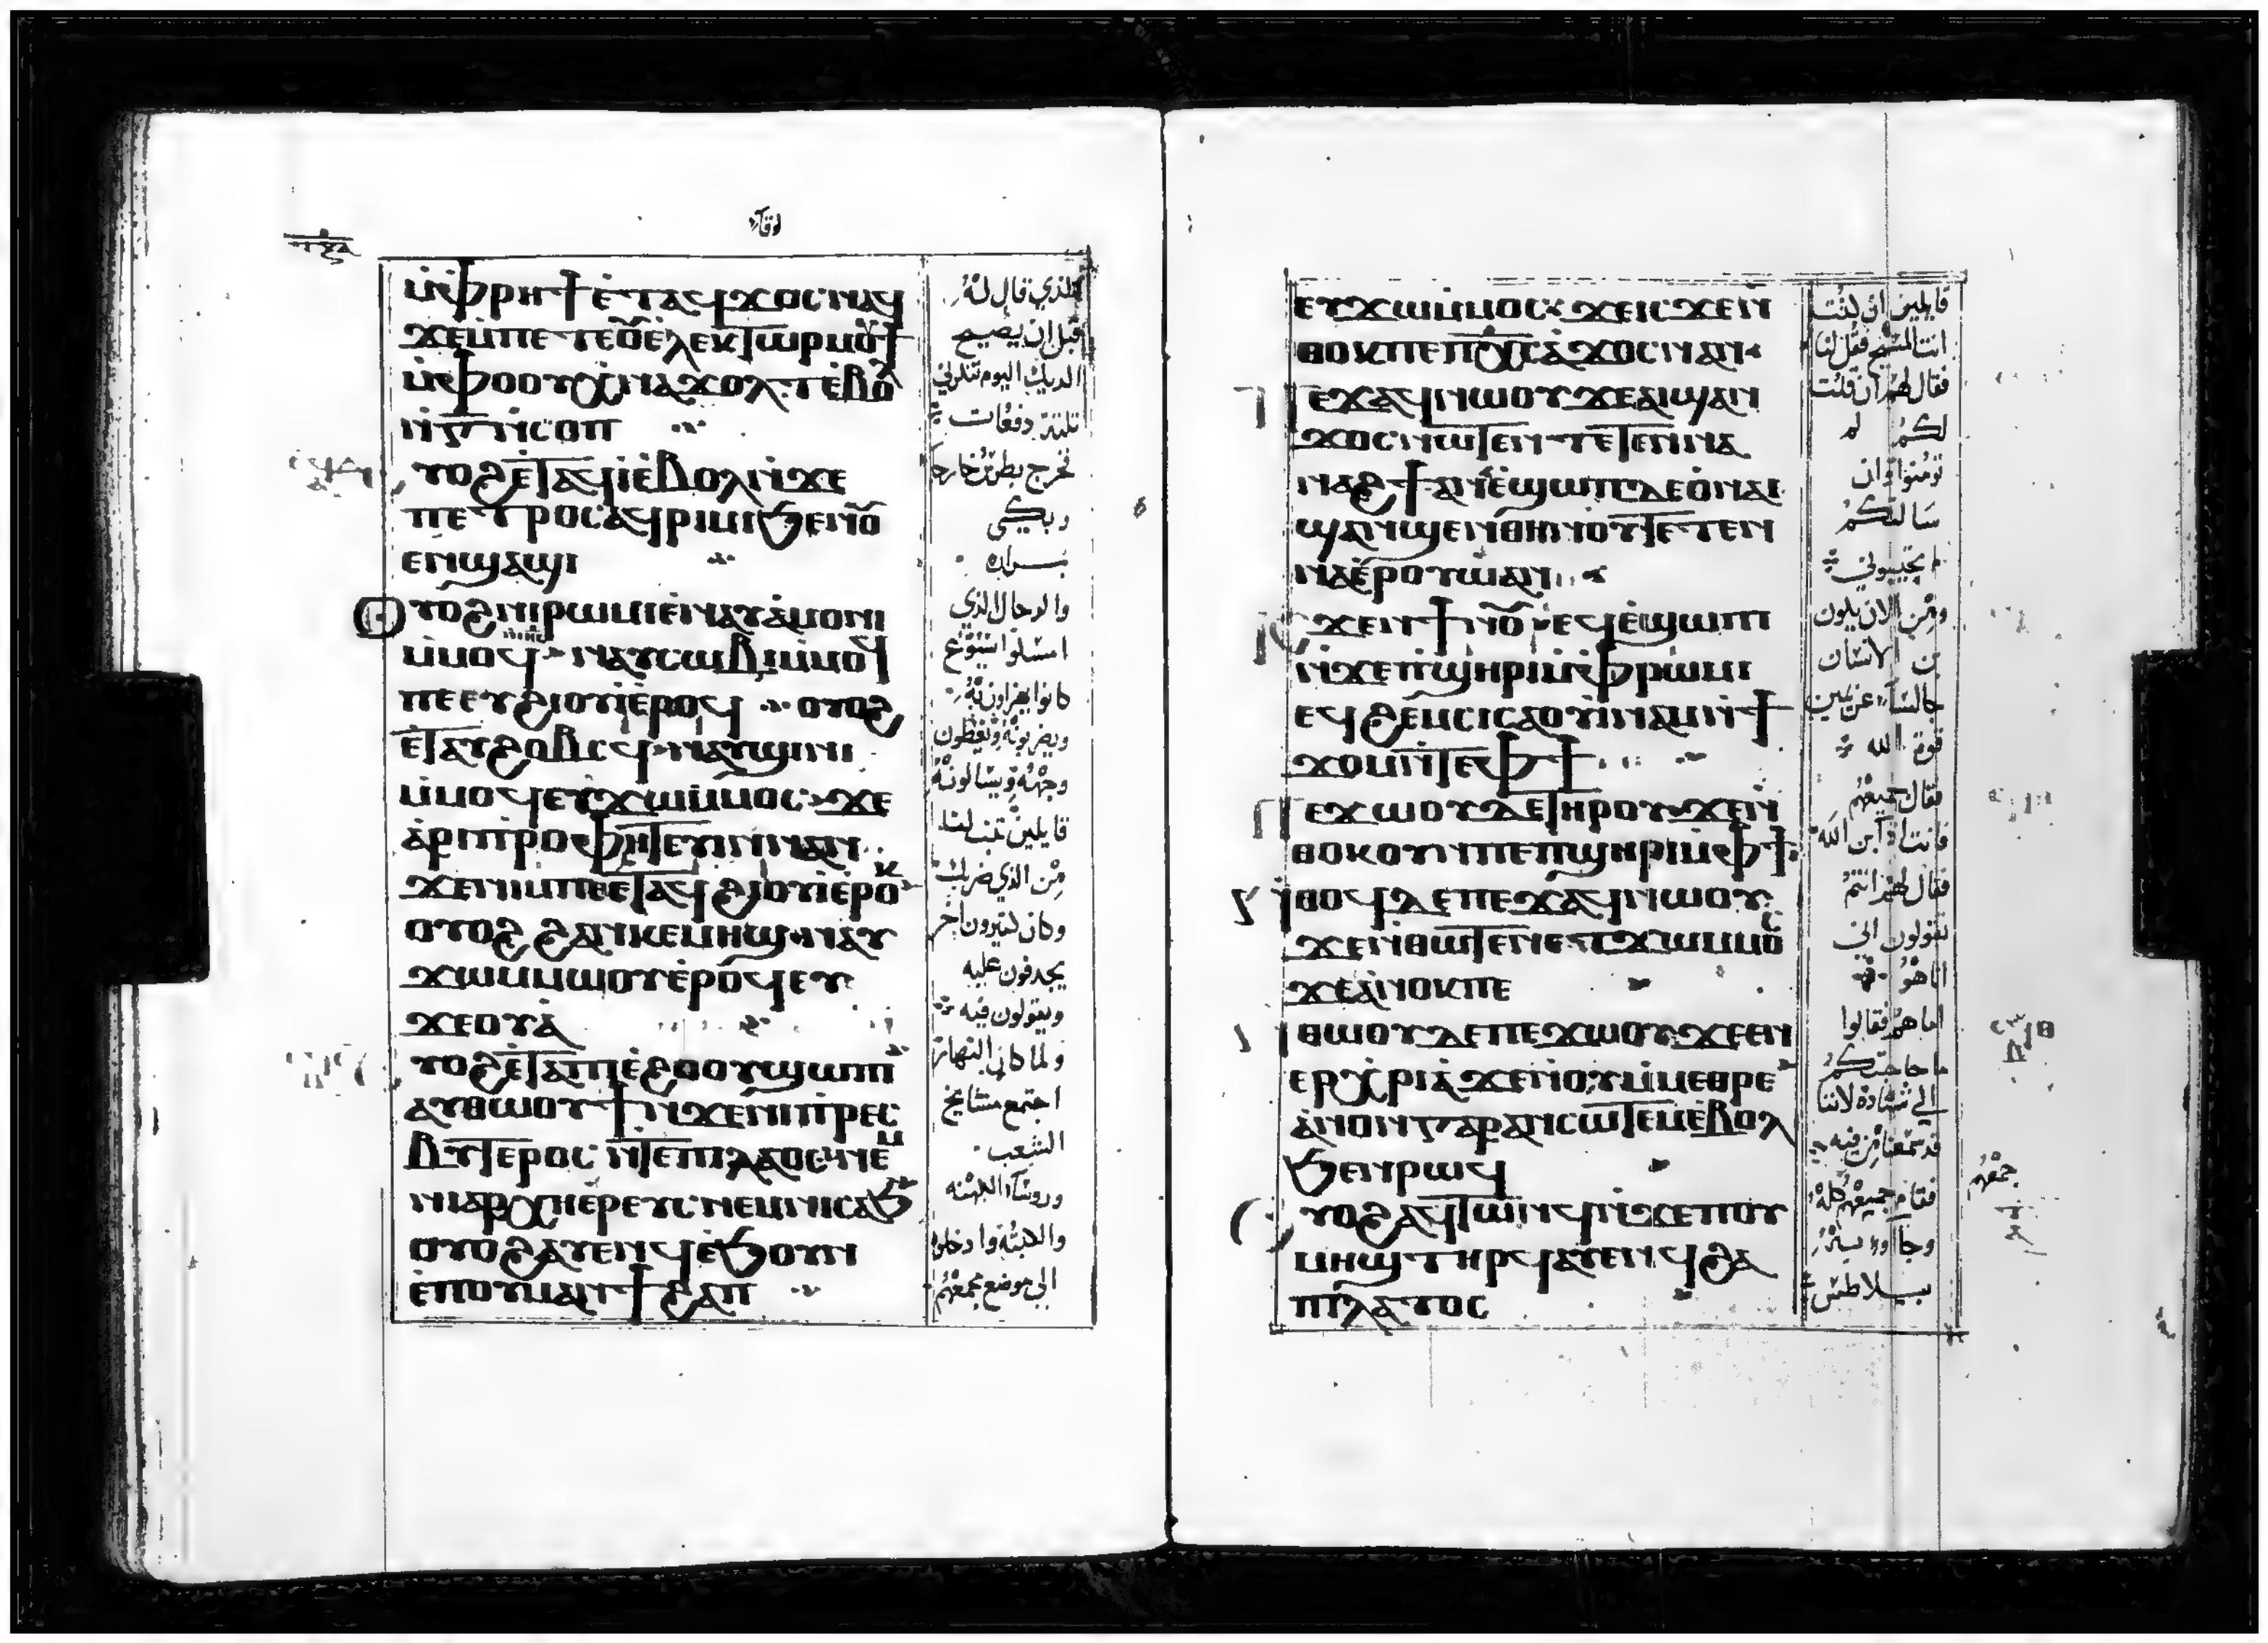 لوقا
ⲙ̇ⲫⲣⲏϯ ⲉ̇ⲧⲁϥϫⲟⲥ ⲛⲁϥ
ϫⲉ ⲙ̇ⲡⲉ
ⲙ̇ⲫⲟⲟⲩ ⲭⲛⲁϫⲟⲗⲧ ⲉ̇ⲃⲟⲗ
ⲛ̇ⲅ̅ ⲛ̇ⲥⲟⲡ
ⲩⲟϩ ⲉ̇ⲧⲁϥⲓ̇ ⲉ̇ⲃⲟⲗ ⲛ̇ϫⲉ
ⲡⲉⲧⲣⲟⲥ ⲁϥⲣⲓⲙⲓ ϧⲉⲛ ⲟ
ⲉⲛϣⲁϣⲓ
ⲩⲟϩ ⲛⲓⲣⲱⲙⲓ ⲉ̇ⲛⲁⲩⲁ̇ⲙⲟⲛⲓ
ⲙ̇ⲙⲟϥ ⲛⲁⲩⲥⲱⲃⲓ ⲙ̇ⲙⲟϥ
ⲡⲉ ⲉⲩϩⲓⲟⲩⲓ̇ ⲉ̇ⲣⲟϥ ⲟⲩⲟϩ
ⲉ̇ⲧⲁⲩϩⲟⲃⲥϥ ⲛⲁⲩϣⲓⲛⲓ
ⲙ̇ⲙⲟϥ ⲉⲩϫⲱ ⲙ̇ⲙⲟⲥ ϫⲉ
ⲁ̇ⲣⲓⲡⲣⲟⲫⲏⲧⲉⲩⲓⲛ ⲛⲁⲛ
ϫⲉ ⲛⲓⲙ ⲡⲉ ⲉⲧⲁϥϩⲓⲟⲩⲓ̇ ⲉ̇ⲣⲟⲕ
ⲟⲩⲟϩ ϩⲁⲛⲕⲉⲙⲏϣ ⲛⲁⲩ
ϫⲱ ⲙ̇ⲙⲱⲟⲩ ⲉ̇ⲣⲟϥ ⲉⲩ
ϫⲉⲟⲩⲁ̇
ⲩⲟϩ ⲉ̇ⲧⲁ ⲡⲓⲉ̇ϩⲟⲟⲩ ϣⲱⲡⲓ
ⲁⲩⲑⲱⲟⲩϯ ⲛ̇ϫⲉ ⲛⲓⲡⲣⲉⲥ
ⲃⲩⲧⲉⲣⲟⲥ ⲛ̇ⲧⲉ ⲡⲓⲗⲁⲟⲥ ⲛⲉⲙ
ⲛⲓⲁⲣⲭⲏⲉ̇ⲣⲉⲩⲥ ⲛⲉⲙ ⲛⲓⲥⲁϧ
ⲟⲩⲟϩ ⲁⲩⲉⲛϥ ⲉ̇ϧⲟⲩⲛ
ⲉ̇ⲡⲟⲩⲙⲁⲛϯϩⲁⲡ
الذي قال له
قبل ان يصيح
الديك اليوم تنكرني
ثلثة دفعات
فخرج بطرس خارجا
وبكى
بمراره
والرجال الذي
امسكوا يسوع
كانوا يهزاون به
ويضربونه ويغطون
وجهه ويسالونه
قايلين تنبا لنا
من الذي ضربك
وكان كثيرون اخر
يجدفون عليه
ويقولون فيه
ولما كان النهار
اجتمع مشايخ
الشعب
وروسآ الكهنه
والكتبه وادخلوه
الى موضع مجمعهم
ⲉⲩϫⲱ ⲙ̇ⲙⲟⲥ ϫⲉ ⲓⲥϫⲉⲛ
ⲑⲟⲕ ⲡⲉ ⲡⲭⲥ ⲁ̇ϫⲟⲥ ⲛⲁⲛ
ⲉϫⲁϥ ⲛⲱⲟⲩ ϫⲉ ⲁⲓϣⲁⲛ
ϫⲟⲥ ⲛⲱⲧⲉⲛ ⲧⲉⲧⲉⲛⲛⲁ
ⲛⲁϩϯ ⲁⲛ ⲉ̇ϣⲱⲡ ⲇⲉ ⲟⲛ ⲁⲓ
ϣⲁⲛϣⲉⲛ ⲑⲏⲛⲟⲩ ⲧⲉⲧⲉⲛ
ⲛⲁⲉ̇ⲣⲟⲩⲱ ⲁⲛ
ϫⲉⲛ ϯⲛⲟⲩ ⲉϥⲉ̇ϣⲱⲡⲓ
ⲛ̇ϫⲉ ⲡϣⲏⲣⲓ ⲙ̇ⲫⲣⲱⲙⲓ
ⲉϥϩⲉⲙⲥⲓ ⲥⲁⲟⲩⲓ̇ⲛⲁⲙ ⲛ̇ϯ
ϫⲟⲙ ⲛ̇ⲧⲉ ⲫϯ
ⲉϫⲱⲟⲩ ⲇⲉ ⲧⲏⲣⲟⲩ ϫⲉ ⲛ̇
ⲑⲟⲕ ⲟⲩⲛ ⲡⲉ ⲡϣⲏⲣⲓ ⲙ̇ⲫϯ
ⲑⲟϥ ⲇⲉ ⲡⲉϫⲁϥ ⲛⲱⲟⲩ
ϫⲉ ⲛ̇ⲑⲱⲧⲉⲛ ⲉⲧϫⲱ ⲙ̇ⲙⲟⲥ
ϫⲉ ⲁ̇ⲛⲟⲕ ⲡⲉ
ⲑⲱⲟⲩ ⲇⲉ ⲡⲉϫⲱⲟⲩ ϫⲉ ⲉⲛ
ⲉⲣⲭⲣⲓⲁ̇ ϫⲉ ⲛ̇ⲟⲩⲙ̇ⲙⲉⲑⲣⲉ
ⲁ̇ⲛⲟⲛ ⲅⲁⲣ ⲁⲛⲥⲱⲧⲉⲙ ⲉ̇ⲃⲟⲗ
ϧⲉⲛ ⲣⲱϥ
ⲩⲟϩ ⲁϥⲧⲱⲛϥ ⲛ̇ϫⲉ ⲡⲟⲩ
ⲙⲏϣ ⲧⲏⲣϥ ⲁⲩⲉⲛϥ ϩⲁ
ⲡⲓⲗⲁⲧⲟⲥ
قايلين ان كنت
انت المسيح فقل لنا
فقال لهم ان قلت
لكم لم
تومنوا وان
سالتكم
لم تجيبوني
ومن الان يكون
بن الانسان
جالسا عن يمين
قوة الله
فقال جميعهم
فانت اذا ابن الله
فقال لهم انتم
تقولون اني
انا هو
اما هم فقالوا
ما حاجتكم
الى شهادة لاننا
قد سمعنا من فيه
فقام جميعهم كله
وجاوا بيسوع
بيلاطس
جمعهم